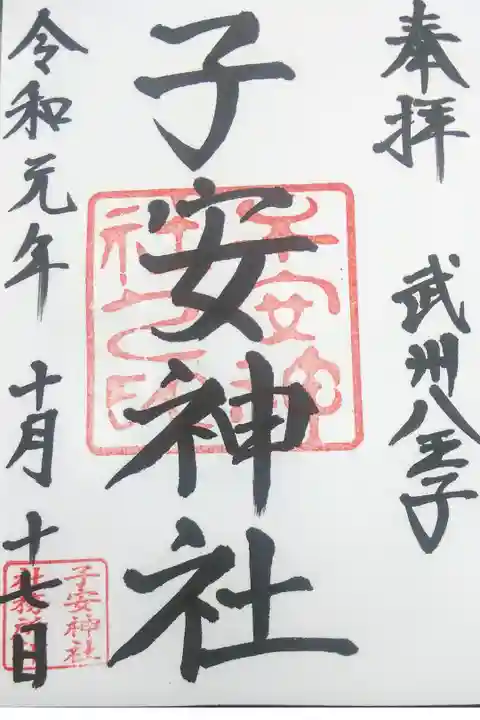 奉拝 武州八王子
子安神社
子安神社之印
令和元年 十月 十七日
子安神社社務所印